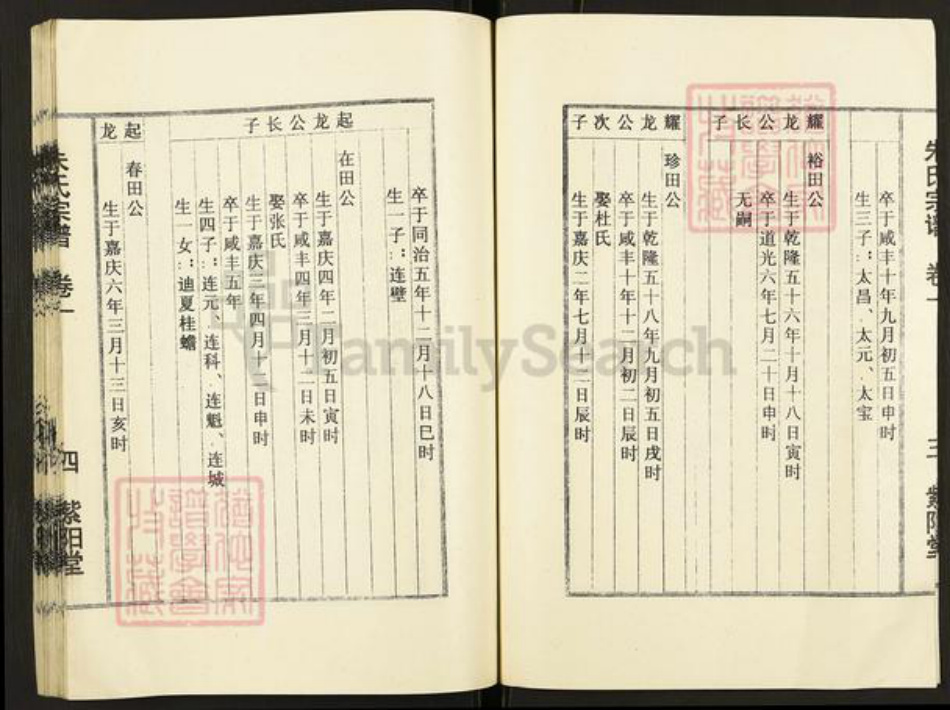 朱氏宗谱 卷一 三 紫阳堂
卒于咸丰十年九月初五日申时
生三子：太昌、太元、太宝
耀龙公长子
裕田公
生于乾隆五十六年十月十八日寅时
卒于道光六年七月二十日申时
无嗣
耀龙公次子
珍田公
生于乾隆五十八年九月初五日戌时
卒于咸丰十年十二月初二日辰时
娶杜氏
生于嘉庆二年七月十二日辰时
卒于同治五年十二月十八日巳时
生一子：连璧
起龙公长子
在田公
生于嘉庆四年二月初五日寅时
卒于咸丰四年三月十二日未时
娶张氏
生于嘉庆三年四月十二日申时
卒于咸丰五年
生四子：连元、连科、连魁、连城
生一女：迪夏桂蟾
起龙
春田公
生于嘉庆六年三月十三日亥时
朱氏宗谱 卷一 四 紫阳堂
FamilySearch